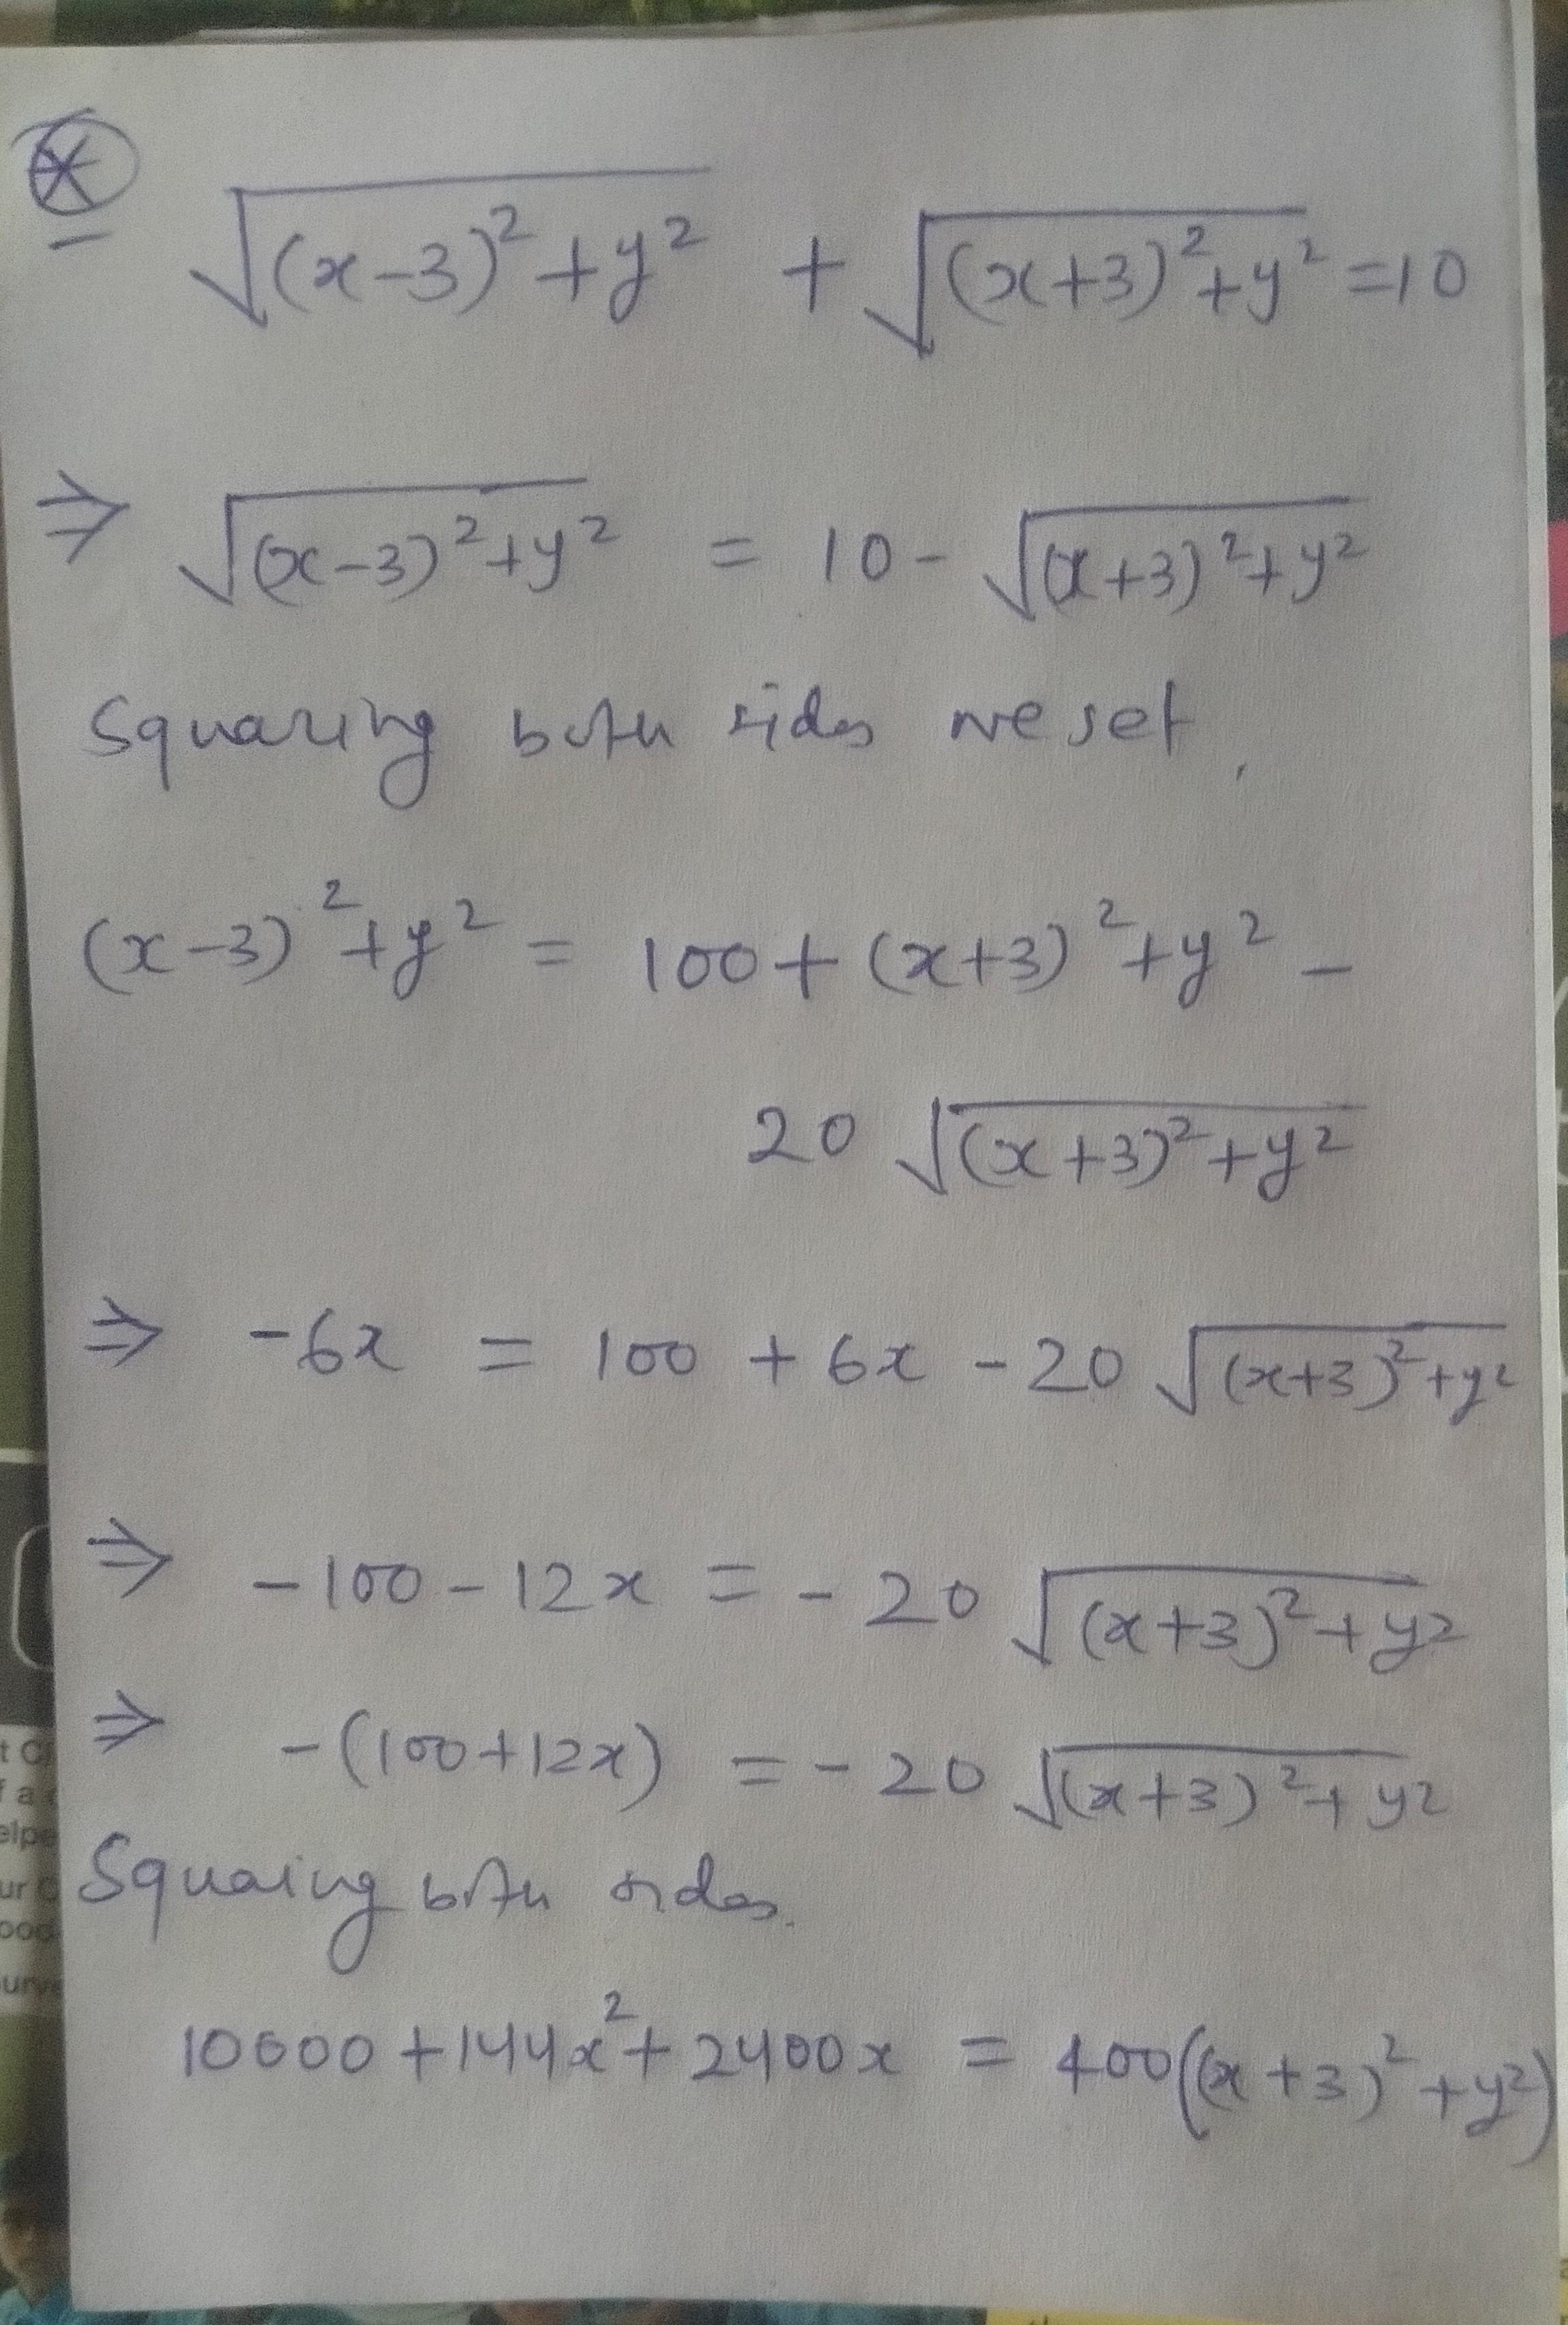 √(x-3)²+y² + √(x+3)²+y² =10
⇒ √(x-3)²+y² = 10 - √(x+3)²+y²
Squaring both sides we get,
(x-3)²+y² = 100+(x+3)²+y² -
20 √(x+3)²+y²
⇒ -6x = 100 + 6x - 20 √(x+3)²+y²
⇒ -100-12x = -20 √(x+3)²+y²
⇒ -(100+12x) = -20 √(x+3)²+y²
Squaring both sides.
10000+144x²+2400x = 400((x+3)²+y²)